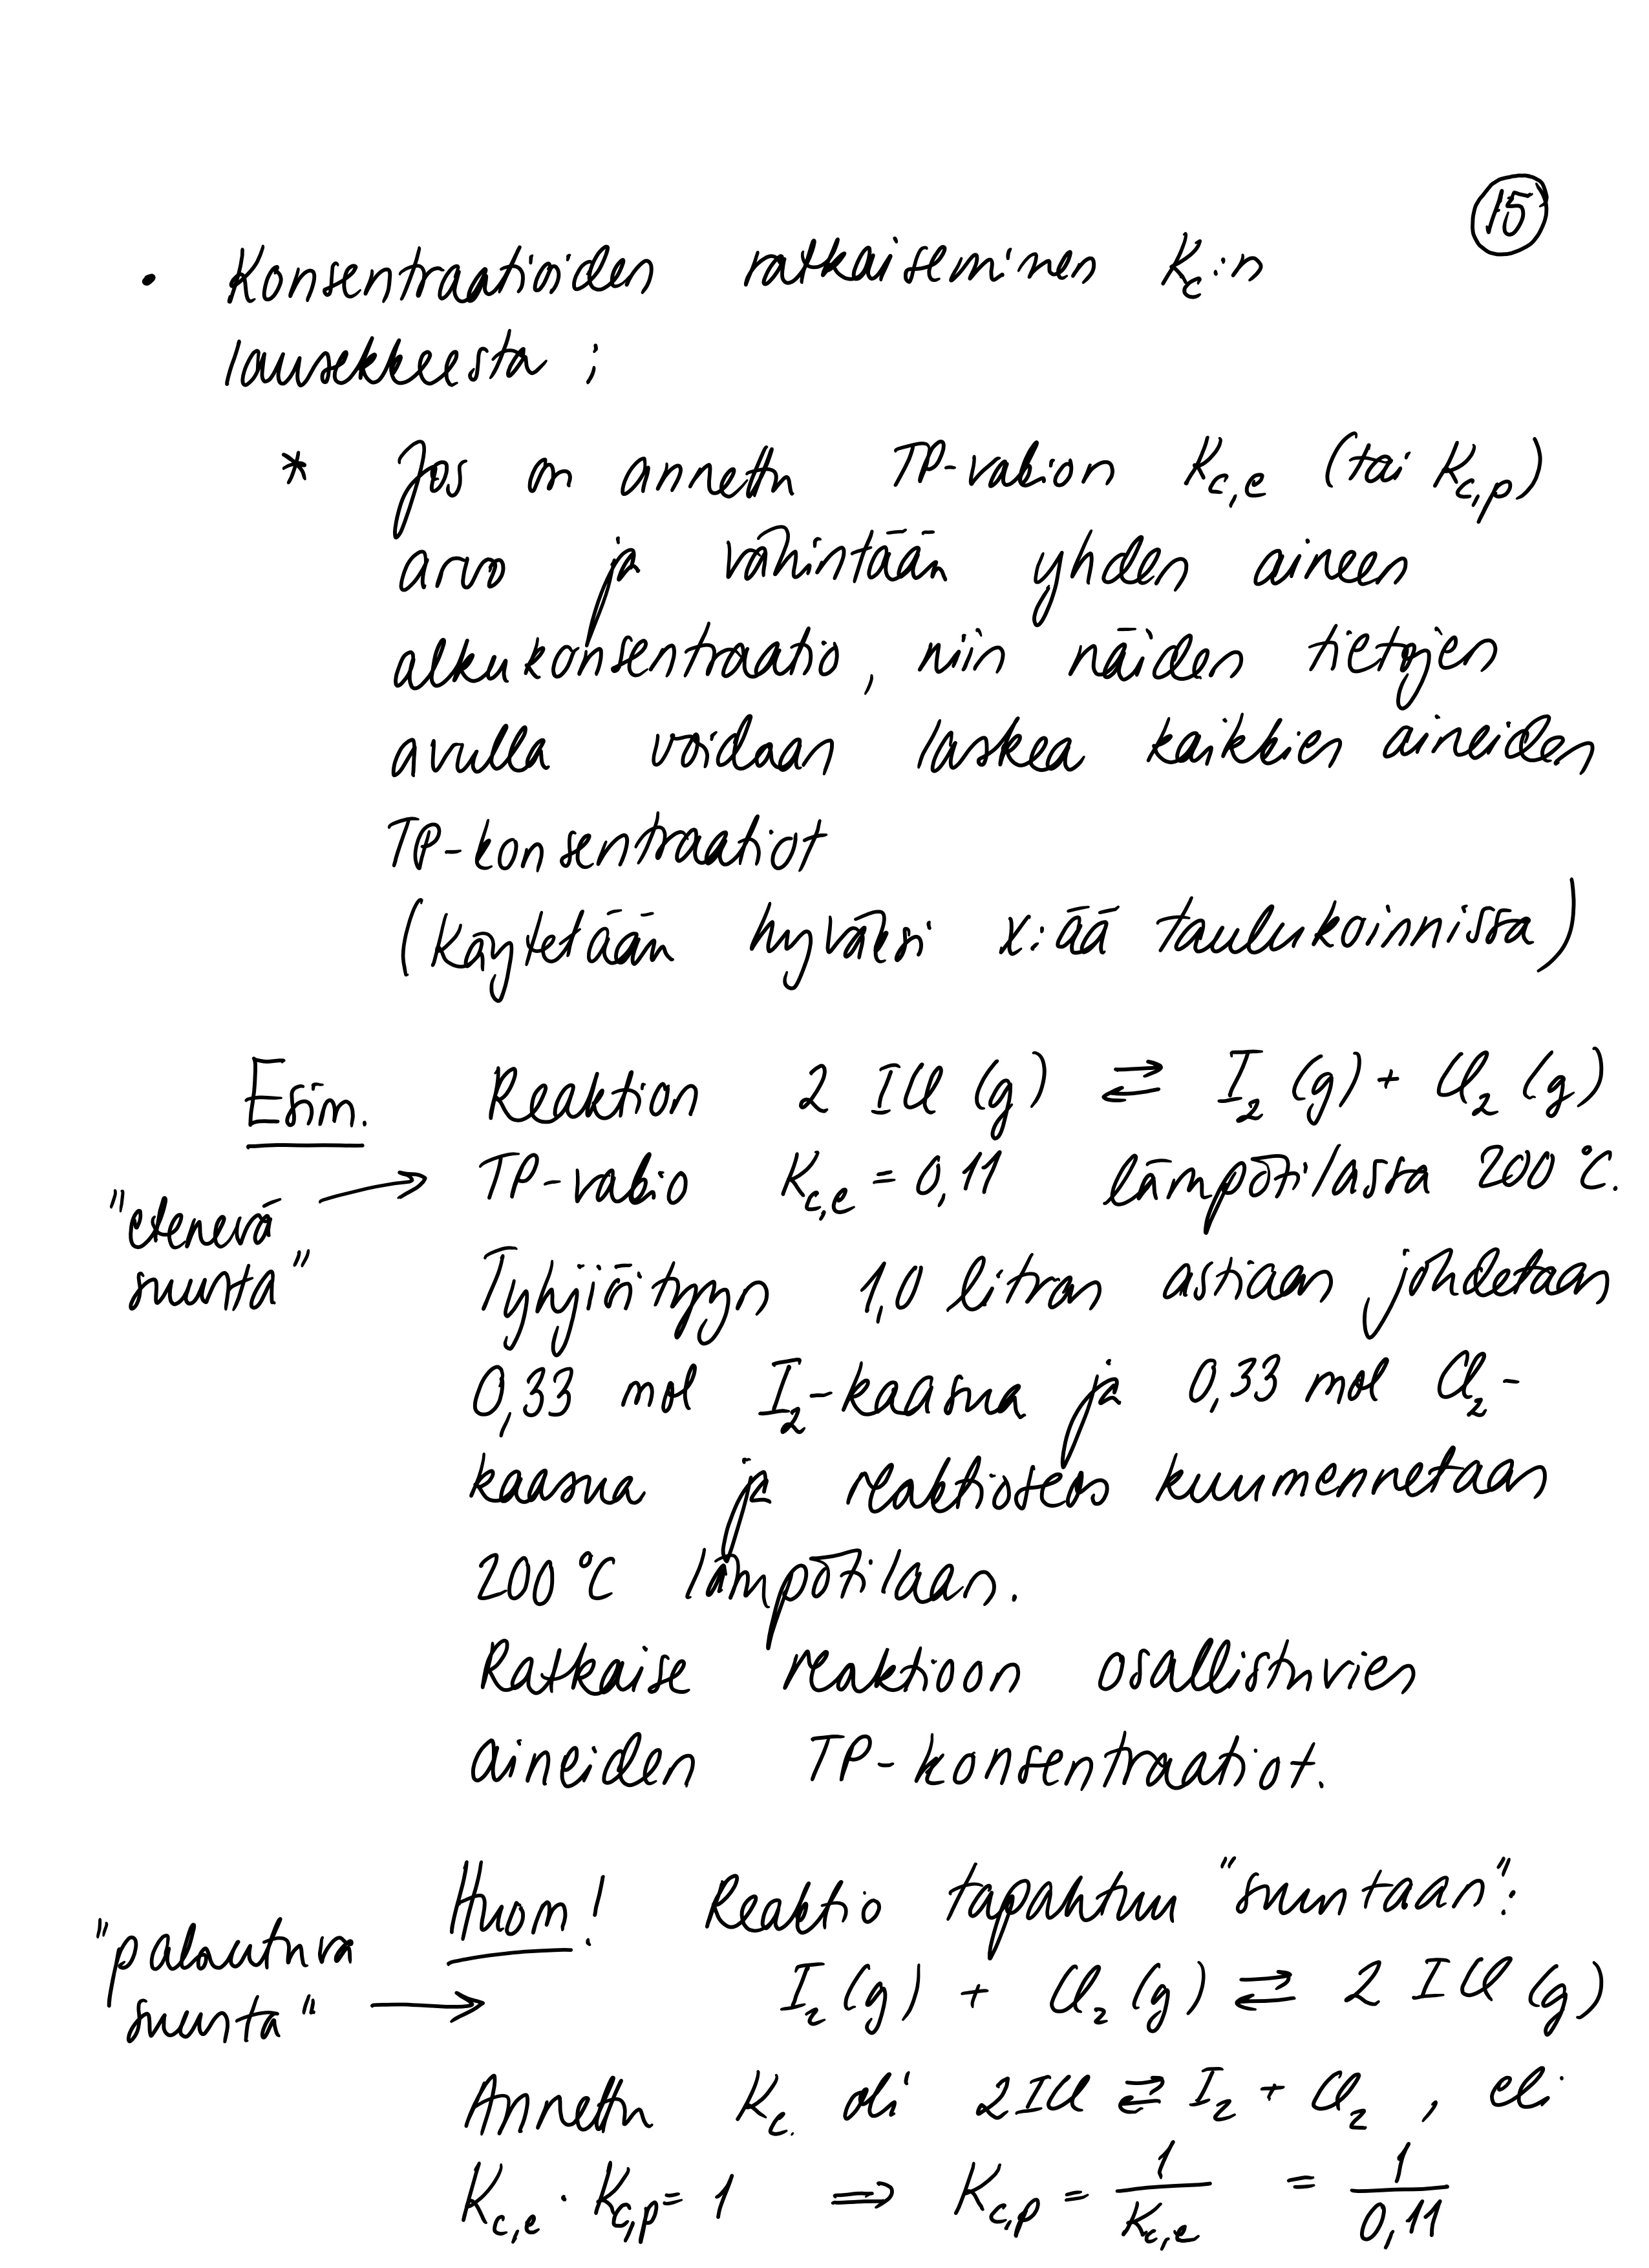 15
• Konsentraatioiden ratkaiseminen Kc:n
lausekkeesta ;
* Jos on annettu TP-vakion Kc,e (tai Kc,p)
arvo ja vähintään yhden aineen
alkukonsentraatio, niin näiden tietojen
avulla voidaan laskea kaikkien aineiden
TP-konsentraatiot
(Käytetään hyväksi x:ää taulukoinnissa)
Esim. Reaktion 2 ICl (g) ⇄ I₂ (g) + Cl₂ (g)
"etenevä suunta" → TP-vakio Kc,e = 0,11 lämpötilassa 200 °C.
Tyhjiöityyn 1,0 litran astiaan johdetaan
0,33 mol I₂-kaasua ja 0,33 mol Cl₂-
kaasua ja reaktioseos kuumennetaan
200 °C lämpötilaan.
Ratkaise reaktioon osallistuvien
aineiden TP-konsentraatiot.
Huom! Reaktio tapahtuu "suuntaan":
"palautuva suunta" → I₂ (g) + Cl₂ (g) ⇄ 2 ICl (g)
Annettu Kc oli 2ICl ⇄ I₂ + Cl₂ , eli
Kc,e · Kc,p = 1 ⇒ Kc,p = 1/Kc,e = 1/0,11